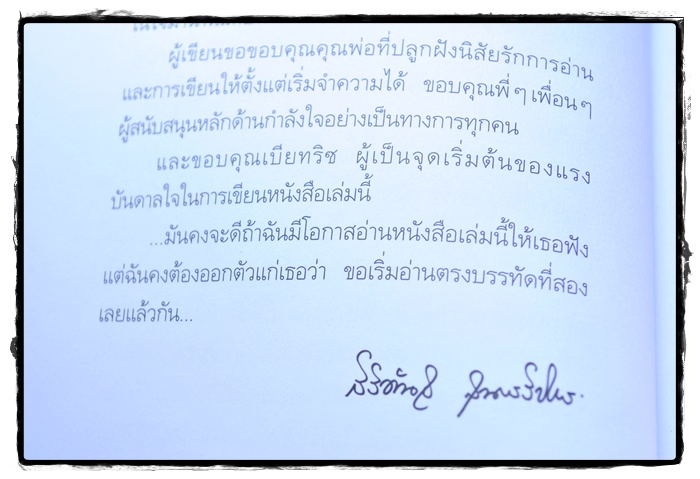 ผู้เขียนขอขอบคุณคุณพ่อที่ปลูกฝังนิสัยรักการอ่าน
และการเขียนให้ตั้งแต่เริ่มจำความได้ ขอบคุณพี่ๆ เพื่อนๆ
ผู้สนับสนุนหลักด้านกำลังใจอย่างเป็นทางการทุกคน
และขอบคุณเบียทริซ ผู้เป็นจุดเริ่มต้นของแรง
บันดาลใจในการเขียนหนังสือเล่มนี้
...มันคงจะดีถ้าฉันมีโอกาสอ่านหนังสือเล่มนี้ให้เธอฟัง
แต่ฉันคงต้องออกตัวแก่เธอว่า ขอเริ่มอ่านตรงบรรทัดที่สอง
เลยแล้วกัน...